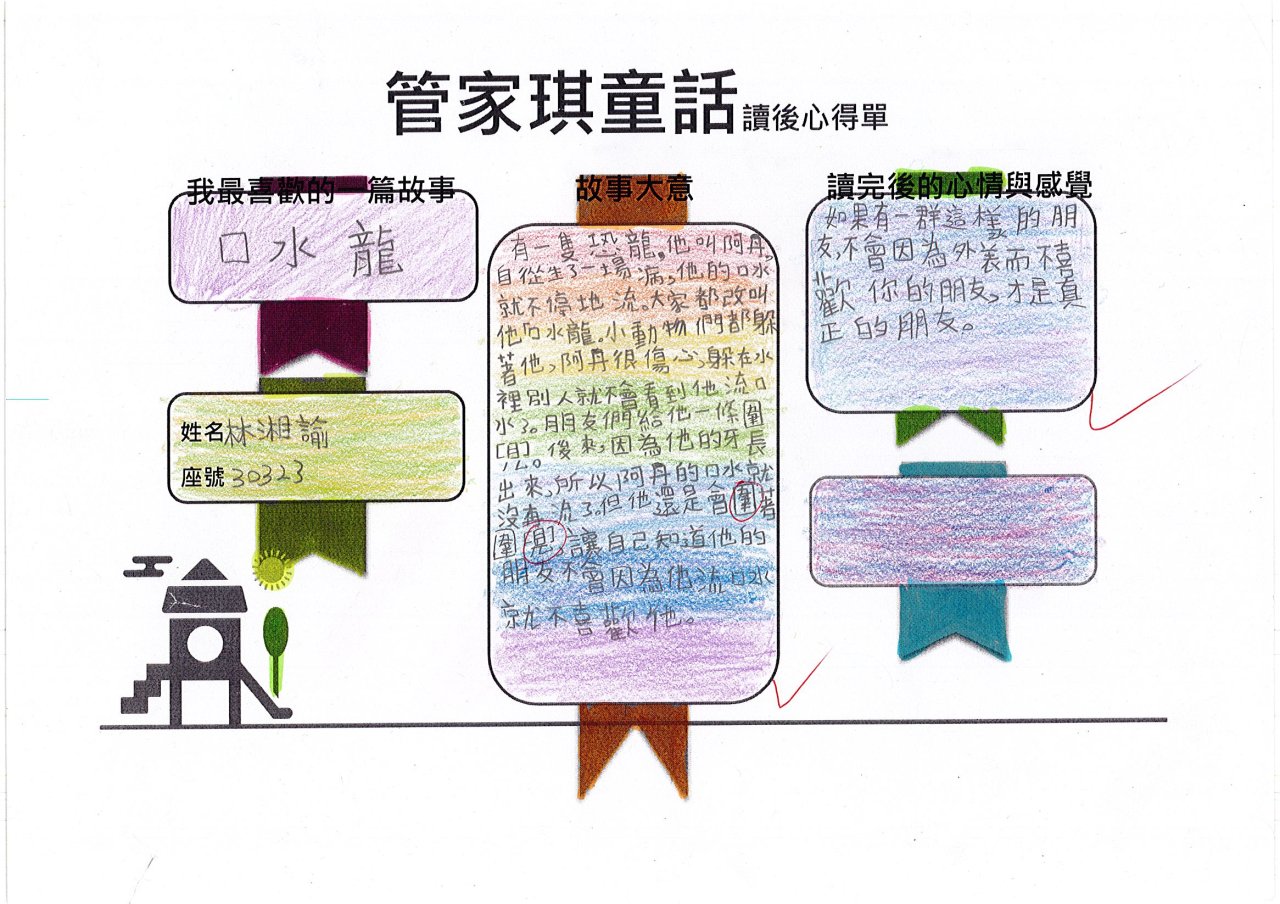 管家琪童話讀後心得單
我最喜歡的一篇故事
口水龍
姓名林湘諭
座號30323
故事大意
有一隻恐龍,他叫阿丹,
自從生了一場病,他的口水
就不停地流。大家都改叫
他口水龍。小動物們都躲
著他,阿丹很傷心,躲在水
裡別人就不會看到他流口
水了。朋友們給他一條圍
後來,因為他的牙長
出來,所以阿丹的口水就
沒再流了,但他還是會圍著
圍,讓自己知道他的
朋友不會因為他流口水
就不喜歡他。
讀完後的心情與感覺
如果有一群這樣的朋
友,不會因為外表而不喜
歡你的朋友,才是真
正的朋友。